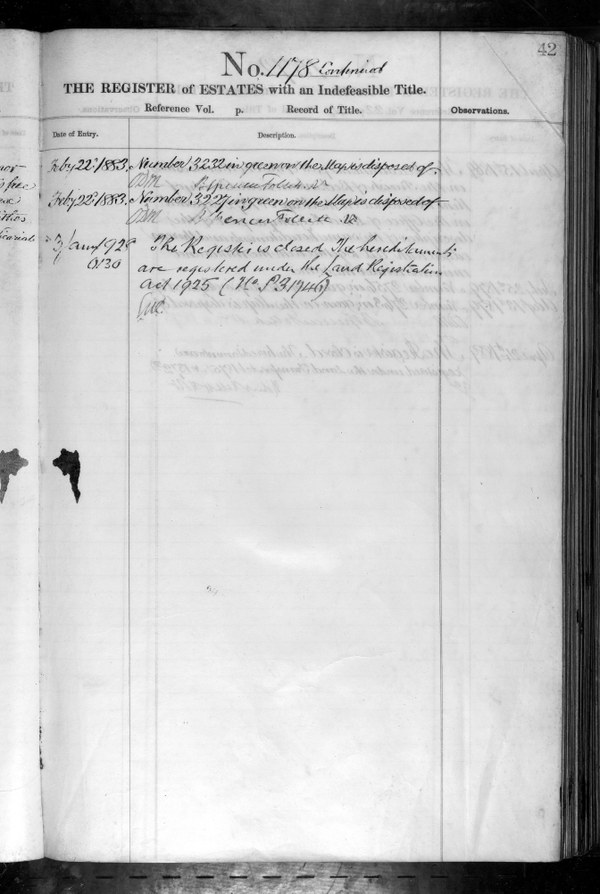 42
No. 1178 Continued
THE REGISTER of ESTATES with an Indefeasible Title.
Reference Vol. p. Record of Title. Observations.
Date of Entry. Description.
Feby 22d 1883. Number 3232 in green on the Map is disposed of.
Spencer Follett
Feby 22d 1883. Number 3227 in green on the Map is disposed of
Spencer Follett
3 Jany 1928 The Register is closed The hereditaments
0130 are registered under the Land Registration
Act 1925 (No. P31746)